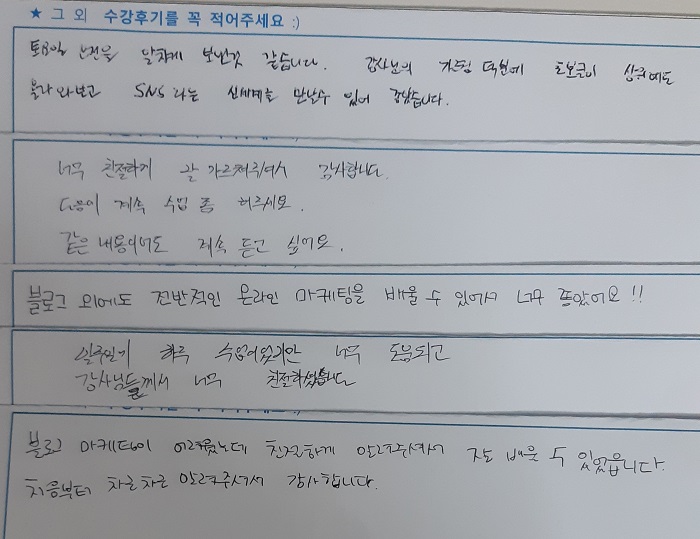 ★ 그 외 수강후기를 꼭 적어주세요 :)
토요일 오전을 알차게 보낸것 같습니다. 강사님의 가르침 덕분에 초보들이
올라와보고 SNS라는 신세계를 만날수 있어 좋았습니다.
너무 친절하게 잘 가르쳐주셔서 감사합니다.
다음에 계속 수업 좀 해주시요.
같은 내용이어도 계속 듣고 싶어요.
블로그 외에도 전반적인 온라인 마케팅을 배울 수 있어서 너무 좋았어요!!
일주일에 하루 수업이었지만 너무 도움되고
강사님들께서 너무 친절하셨습니다
블로그 마케팅이 어려웠는데 친절하게 알려주셔서 잘 배울 수 있었읍니다.
처음부터 차근차근 알려주셔서 감사합니다.